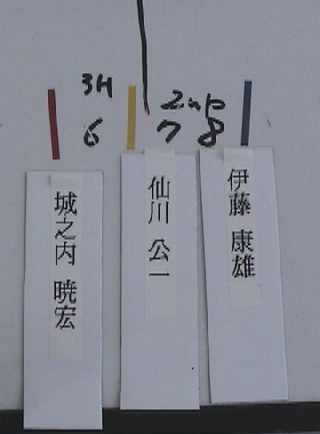 3H
2up
6
7
8
城之内 暁宏
仙川 公一
伊藤 康雄